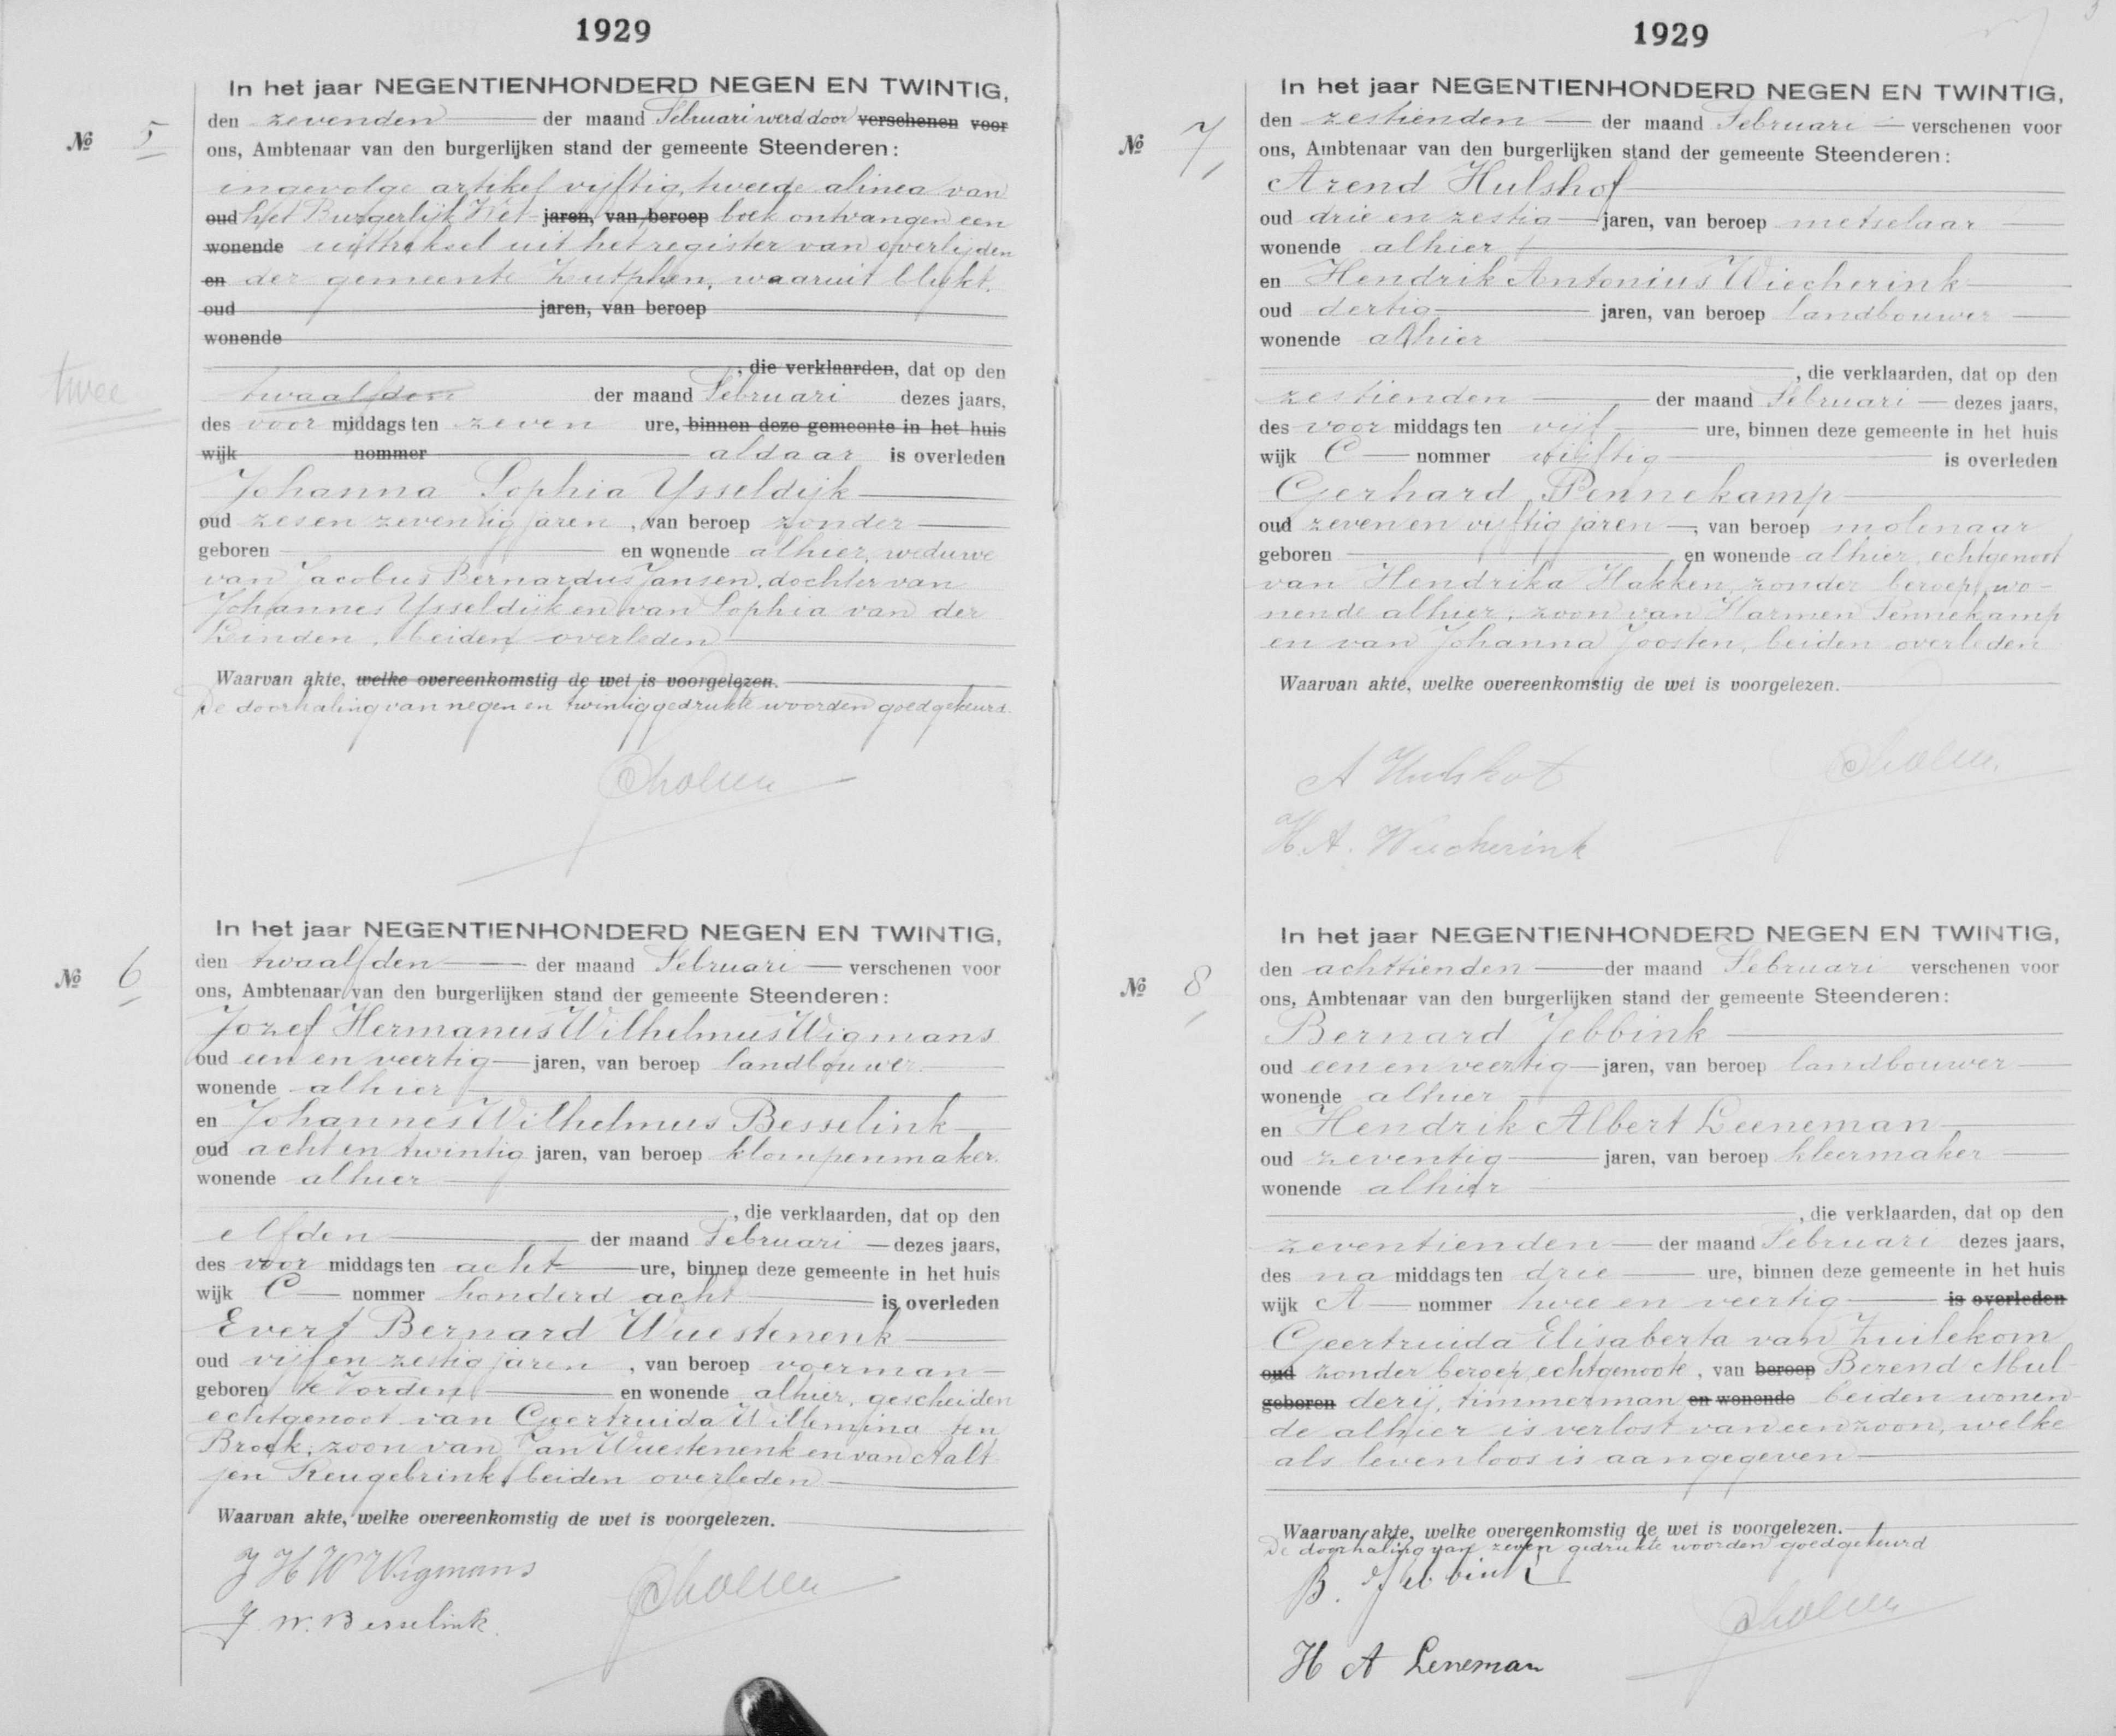 1929
In het jaar NEGENTIENHONDERD NEGEN EN TWINTIG,
den zevenden der maand Februari werd door verschenen voor
No 5
ons, Ambtenaar van den burgerlijken stand der gemeente Steenderen:
ingevolge artikel vijftig, tweede alinea van
oud het Burgerlijk Wet- jaren, van beroep boek ontvangen een
wonende uittreksel uit het register van overlijden
en der gemeente Zutphen, waaruit blijkt,
oud jaren, van beroep
wonende
, die verklaarden, dat op den
twee
twaalfden der maand Februari dezes jaars,
des voor middags ten zeven ure, binnen deze gemeente in het huis
wijk nommer aldaar is overleden
Johanna Sophia Ysseldijk
oud zes en zeventig jaren, van beroep zonder
geboren en wonende alhier, weduwe
van Jacobus Bernardus Jansen, dochter van
Johannes Ysseldijk en van Sophia van der
Linden, beiden overleden
Waarvan akte, welke overeenkomstig de wet is voorgelezen.
De doorhaling van negen en twintig gedrukte woorden goedgekeurd.
In het jaar NEGENTIENHONDERD NEGEN EN TWINTIG,
den twaalfden der maand Februari verschenen voor
No 6
ons, Ambtenaar van den burgerlijken stand der gemeente Steenderen:
Jozef Hermanus Wilhelmus Wigmans
oud een en veertig jaren, van beroep landbouwer
wonende alhier
en Johannes Wilhelmus Besselink
oud acht en twintig jaren, van beroep klompenmaker
wonende alhier
, die verklaarden, dat op den
elfden der maand Februari dezes jaars,
des voor middags ten acht ure, binnen deze gemeente in het huis
wijk C nommer honderd acht is overleden
Evert Bernard Wuestenenk
oud vijf en zestig jaren, van beroep voerman
geboren te Vorden en wonende alhier, gescheiden
echtgenoot van Geertruida Willemina ten
Broek, zoon van Jan Wuestenenk en van Aalt
jen Reugebrink, beiden overleden
Waarvan akte, welke overeenkomstig de wet is voorgelezen.
J H W Wigmans
J. W. Besselink.
1929
In het jaar NEGENTIENHONDERD NEGEN EN TWINTIG,
den zestienden der maand Februari verschenen voor
No 7
ons, Ambtenaar van den burgerlijken stand der gemeente Steenderen:
Arend Hulshof
oud drie en zestig jaren, van beroep metselaar
wonende alhier
en Hendrik Antonius Wiecherink
oud dertig jaren, van beroep landbouwer
wonende alhier
, die verklaarden, dat op den
zestienden der maand Februari dezes jaars,
des voor middags ten vijf ure, binnen deze gemeente in het huis
wijk C nommer vijftig is overleden
Gerhard Pennekamp
oud zeven en vijftig jaren, van beroep molenaar
geboren en wonende alhier, echtgenoot
van Hendrika Hakken, zonder beroep, wo-
nende alhier, zoon van Harmen Pennekamp
en van Johanna Joosten, beiden overleden
Waarvan akte, welke overeenkomstig de wet is voorgelezen.
A Hulshof
H. A. Wiecherink
In het jaar NEGENTIENHONDERD NEGEN EN TWINTIG,
den achttienden der maand Februari verschenen voor
No 8
ons, Ambtenaar van den burgerlijken stand der gemeente Steenderen:
Bernard Jebbink
oud een en veertig jaren, van beroep landbouwer
wonende alhier
en Hendrik Albert Leeneman
oud zeventig jaren, van beroep kleermaker
wonende alhier
, die verklaarden, dat op den
zeventienden der maand Februari dezes jaars,
des na middags ten drie ure, binnen deze gemeente in het huis
wijk A nommer twee en veertig is overleden
Geertruida Elisaberta van Zuilekom
oud zonder beroep, echtgenoote, van beroep Berend Mul-
geboren derij, timmerman en wonende beiden wonen-
de alhier is verlost van een zoon, welke
als levenloos is aangegeven
Waarvan akte, welke overeenkomstig de wet is voorgelezen.
De doorhaling van zeven gedrukte woorden goedgekeurd
B. Jebbink
H A Leneman